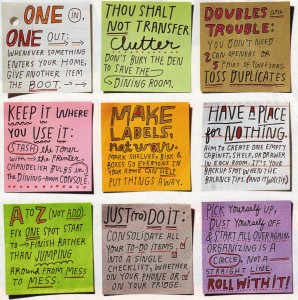 ONE IN,
ONE OUT:
WHENEVER SOMETHING
ENTERS YOUR HOME,
GIVE ANOTHER ITEM
THE BOOT.
THOU SHALT
NOT TRANSFER
Clutter
DON'T BURY THE DEN
TO SAVE THE
DINING ROOM.
DOUBLES are
TROUBLE:
YOU DON'T NEED
2 CAN OPENERS OR
PAIRS OF TWEEZERS.
TOSS DUPLICATES
KEEP IT WHERE
YOU USE IT:
STASH the TONER
WITH the PRINTER,
CHANDELIER BULBS in
the DINING-ROOM CONSOLE
MAKE
LABELS,
not war.
MARK SHELVES, BINS &
BOXES SO EVERYONE IN
YOUR HOME CAN HELP
PUT THINGS AWAY.
HAVE A PLACE
for NOTHING.
AIM TO CREATE ONE EMPTY
CABINET, SHELF, OR DRAWER
IN EACH ROOM. IT'S YOUR
BACKUP SPOT WHEN THE
BALANCE TIPS.
A to Z (NOT ADD)
FIX ONE SPOT START
TO FINISH RATHER
THAN JUMPING
AROUND FROM MESS TO
MESS TO MESS.
JUST (to) DO IT:
CONSOLIDATE ALL
YOUR TO-DO ITEMS
INTO A SINGLE
CHECKLIST, WHETHER
ON YOUR PHONE OR
ON YOUR FRIDGE.
PICK YOURSELF UP,
DUST YOURSELF OFF
& START ALL OVER AGAIN:
ORGANIZING IS A
CIRCLE, NOT A
STRAIGHT LINE.
ROLL WITH IT!